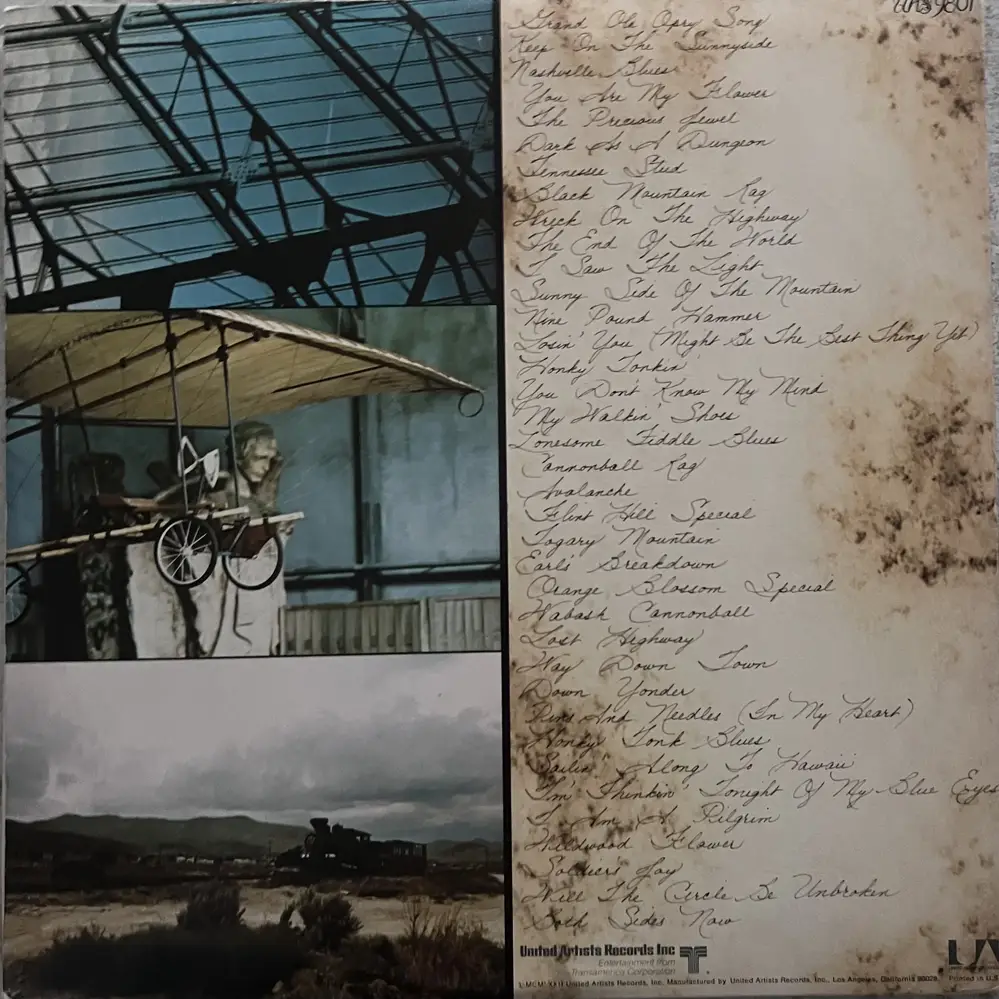 UAS 9801
Grand Ole Opry Song
Keep On The Sunnyside
Nashville Blues
You Are My Flower
The Precious Jewel
Dark As A Dungeon
Tennessee Stud
Black Mountain Rag
Wreck On The Highway
The End Of The World
I Saw The Light
Sunny Side Of The Mountain
Nine Pound Hammer
Losin' You (Might Be The Best Thing Yet)
Honky Tonkin'
You Don't Know My Mind
My Walkin' Shoes
Lonesome Fiddle Blues
Cannonball Rag
Avalanche
Flint Hill Special
Togary Mountain
Earl's Breakdown
Orange Blossom Special
Wabash Cannonball
Lost Highway
Way Down Town
Down Yonder
Pins And Needles (In My Heart)
Honky Tonk Blues
Sailin' Along To Hawaii
I'm Thinkin' Tonight Of My Blue Eyes
I Am A Pilgrim
Wildwood Flower
Soldier's Joy
Will The Circle Be Unbroken
Both Sides Now
United Artists Records Inc
Entertainment from
Transamerica Corporation
UA
MCMLXXII United Artists Records, Inc. Manufactured by United Artists Records, Inc., Los Angeles, California 90028 Printed in U.S.